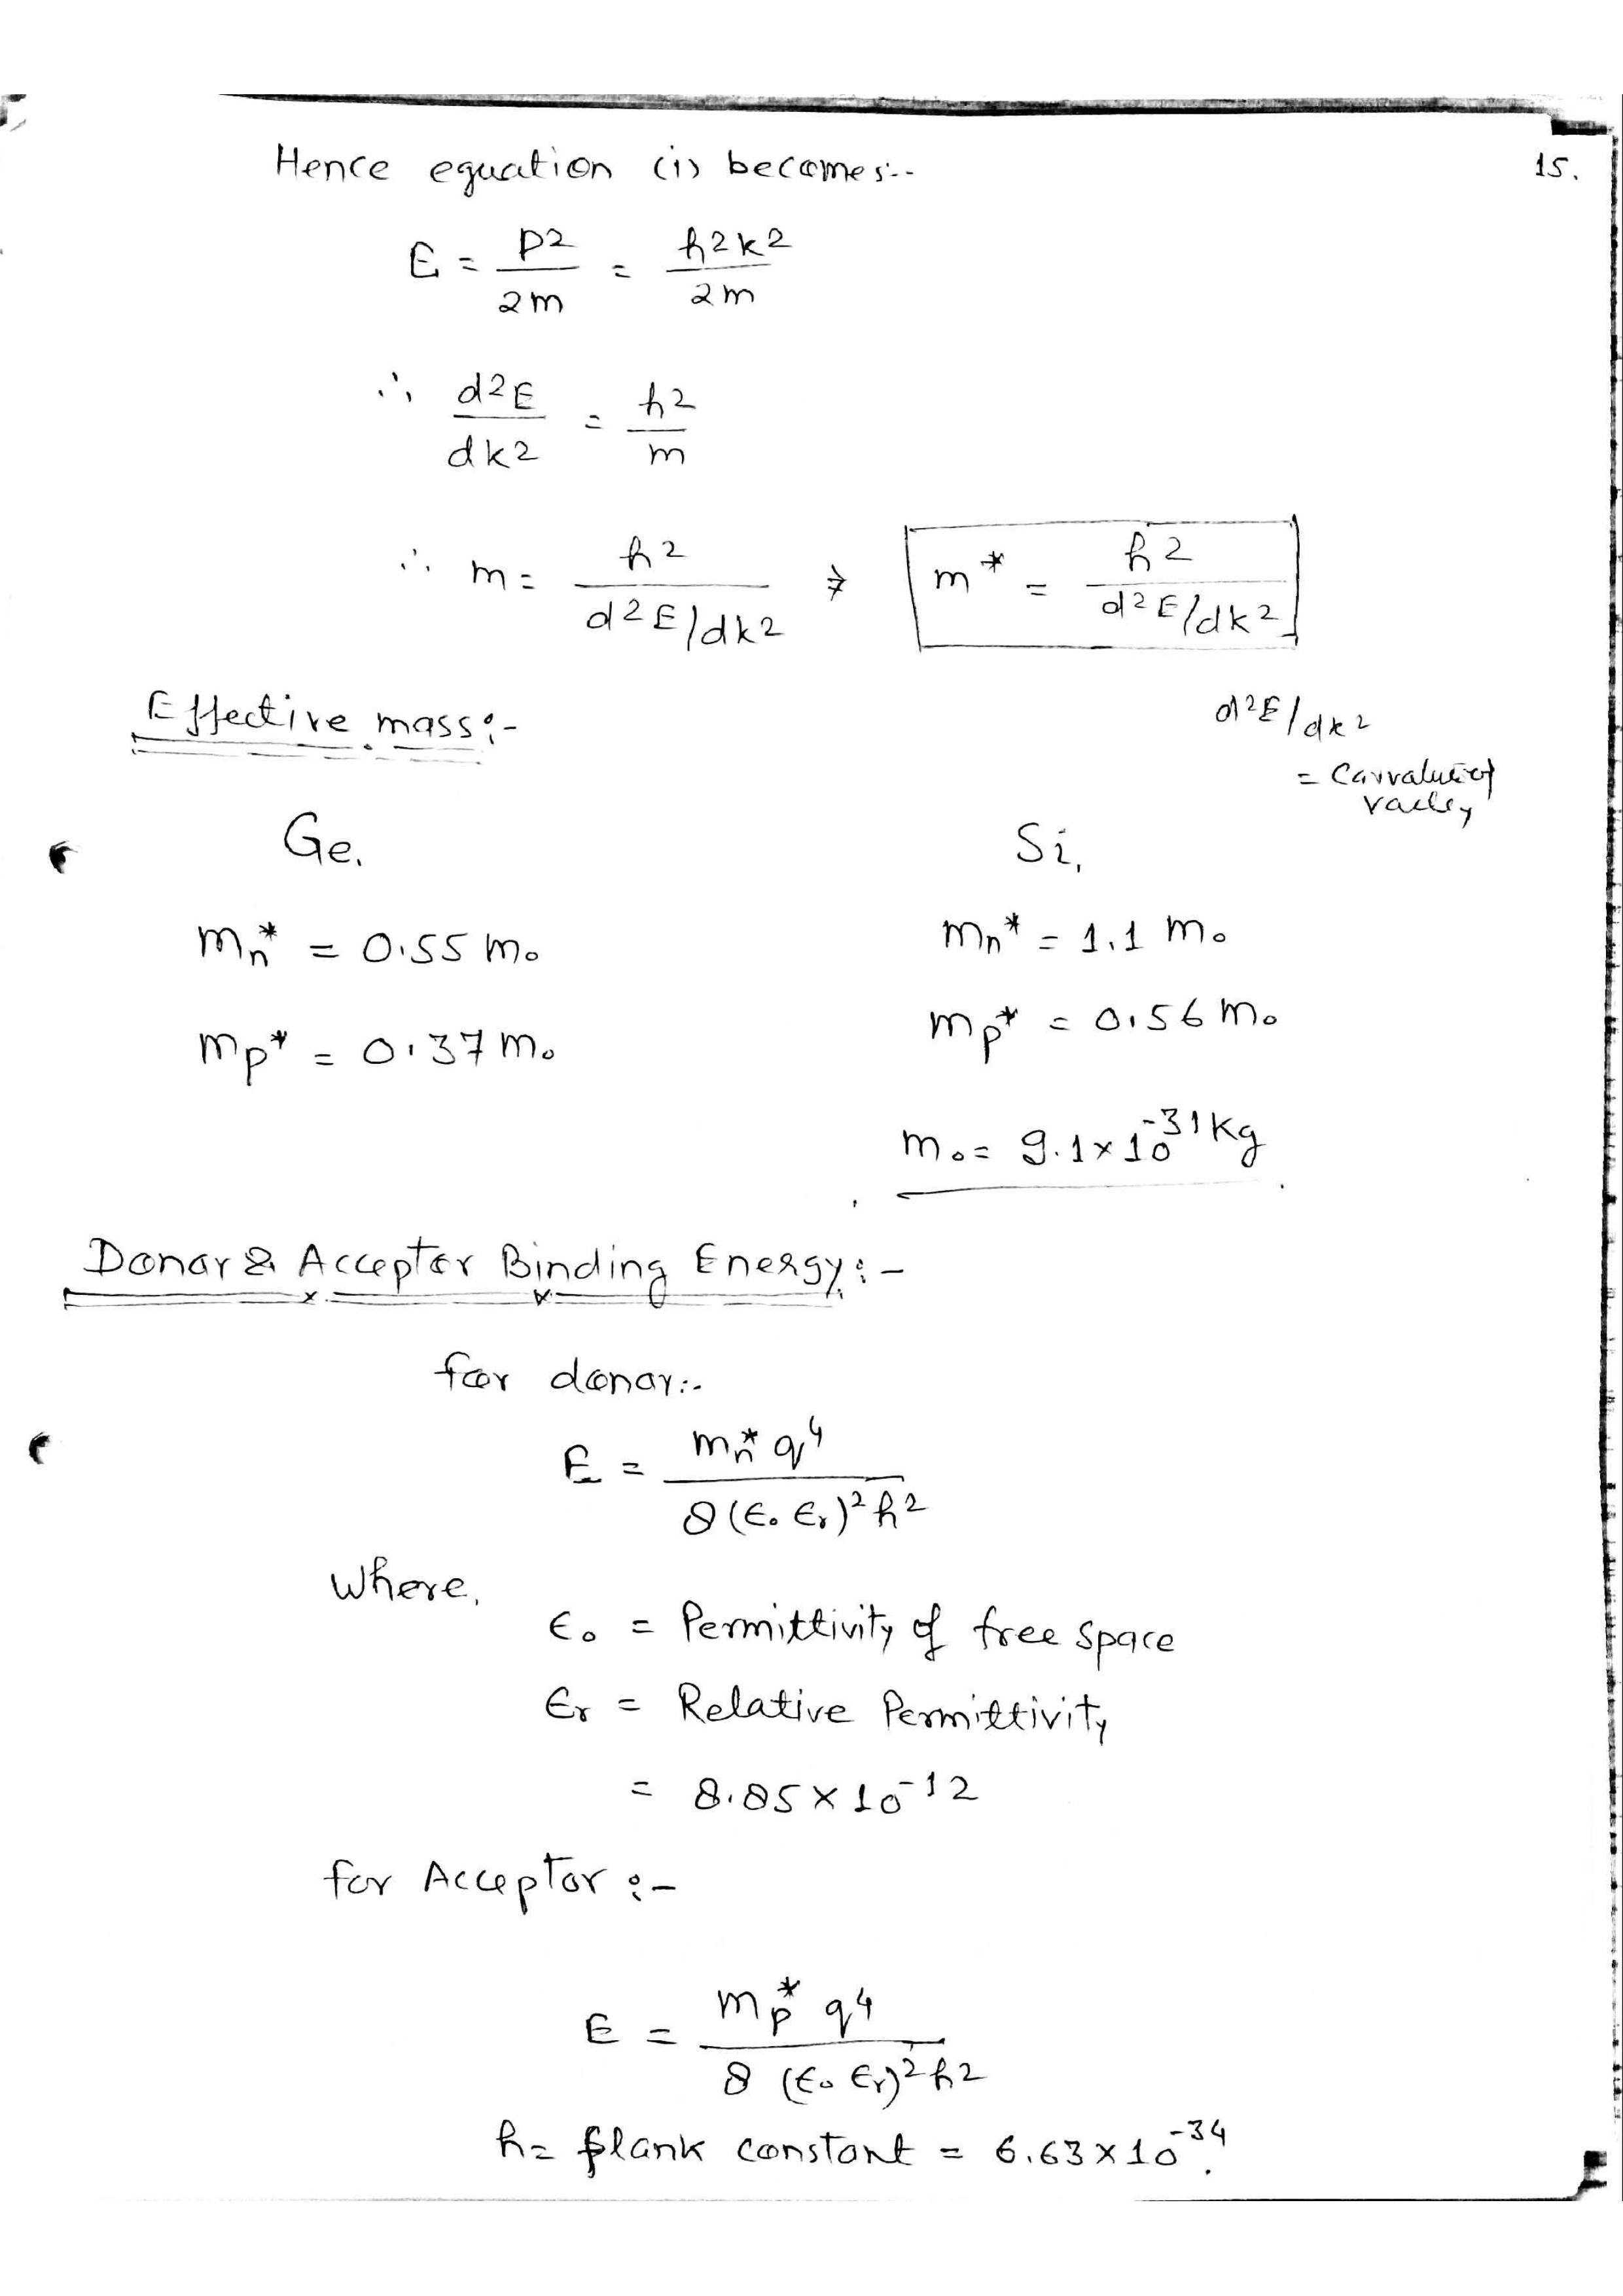 15.
Hence equation (i) becomes:-
E = p2/2m = ħ2k2/2m
∴ d2E/dk2 = ħ2/m
∴ m = ħ2/d2E/dk2 ⇒ m* = ħ2/d2E/dk2
Effective mass:-
d2E/dk2
=
valley
Ge,
Si,
mn* = 0.55 mo
mn* = 1.1 mo
mp* = 0.37 mo
mp* = 0.56 mo
mo = 9.1 × 10^-31 kg
Donar & Acceptor Binding Energy:-
for donar:-
E = mn* q4/8(ϵo ϵr)2 h2
Where,
ϵo = Permittivity of free space
ϵr = Relative Permittivity
= 8.85 × 10^-12
for Acceptor :-
E = mp* q4/8 (ϵo ϵr)2 h2
h = plank constant = 6.63 × 10^-34.